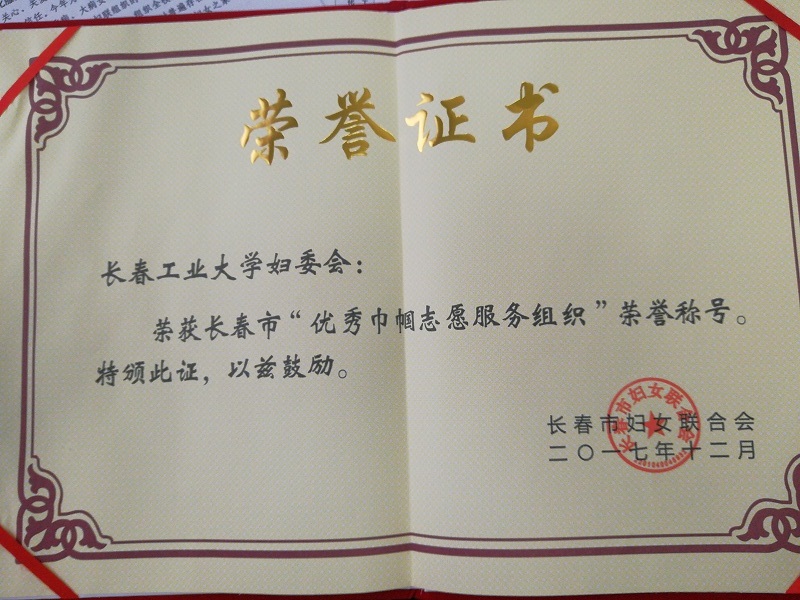 荣誉证书
长春工业大学妇委会：
荣获长春市“优秀巾帼志愿服务组织”荣誉称号。
特颁此证，以兹鼓励。
长春市妇女联合会
长春市妇女联合会
二〇一七年十二月